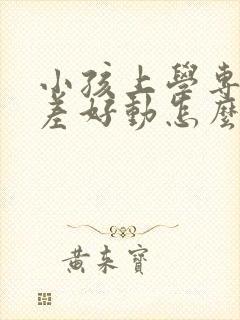 小孩上學專
差好動怎麼
黃來寶